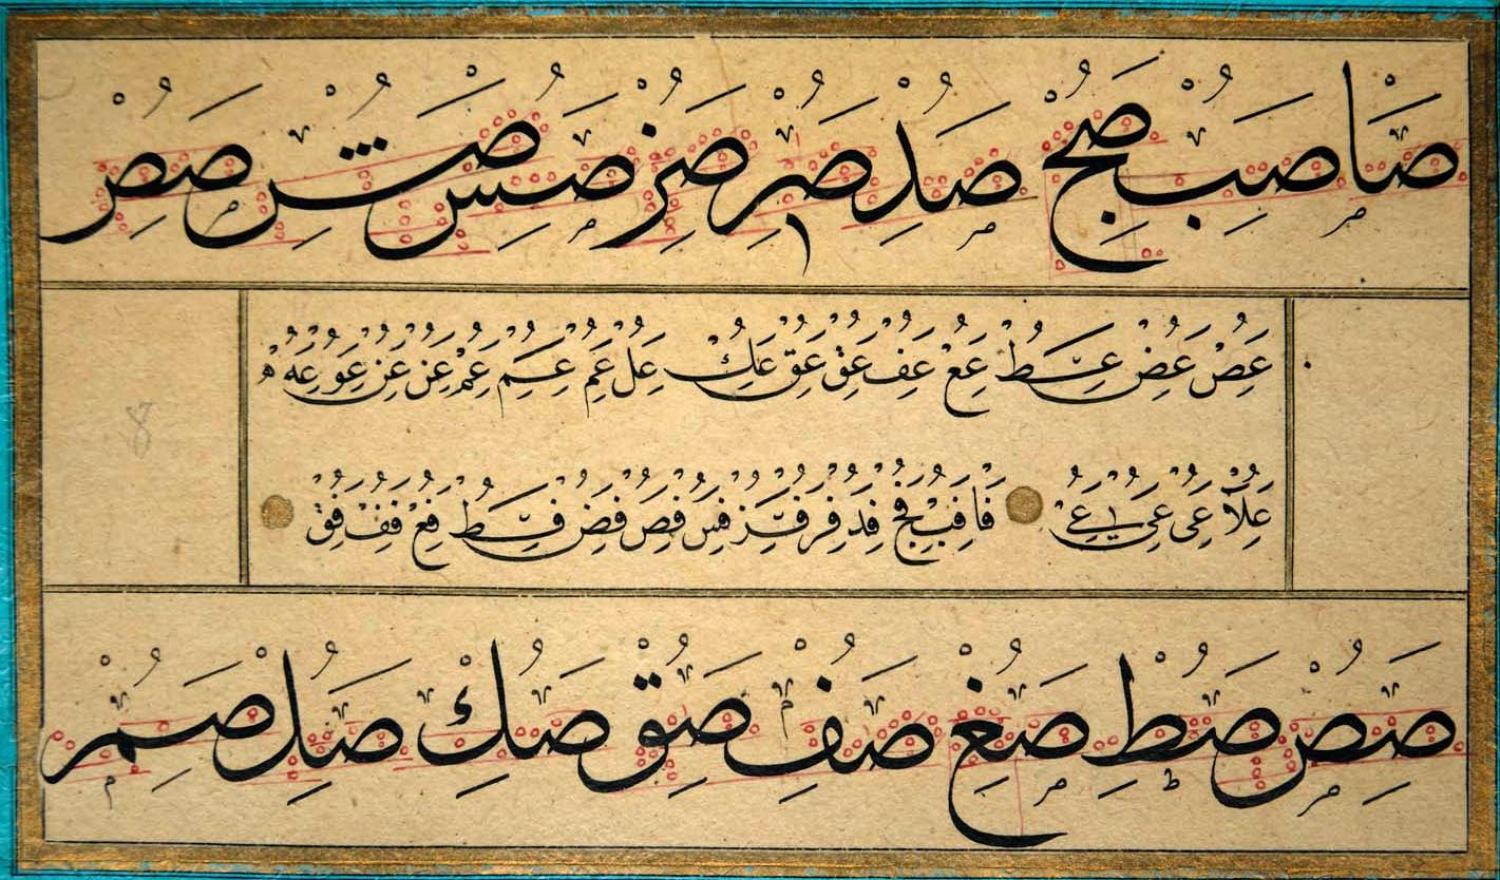 صَا صَبْ صُحِ صَدِ صُرِ صُزِ صَسِ صُشِ صَصِ
عص عض عط عع عف عق عق عك عل عم عم عم عن عن عو عه
علا عى عى عے فا فب فج فد فر فز فس فص فض فط فع فف فق
صَصِ صُطِ صُغِ صَفِ صُقِ صَكِ صُلِ صَمِ